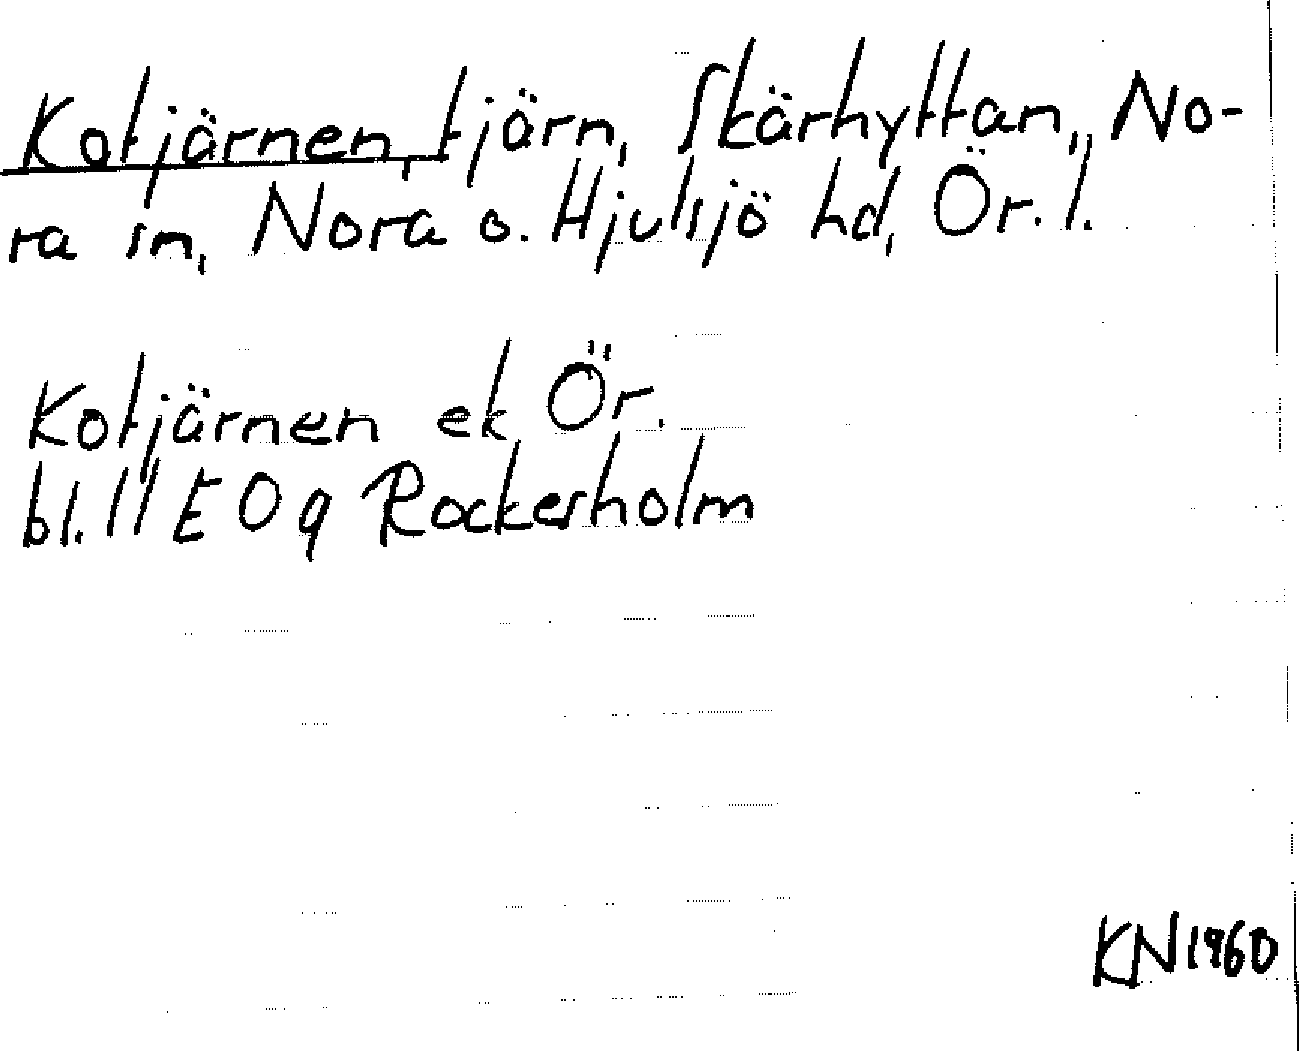 Kotjärnen, tjärn, Skärhyttan, No-
ra sn, Nora o. Hjulsjö hd, Ör. l.
Kotjärnen ek Ör.
bl. 11 E 0 q Rockesholm
KN 1960